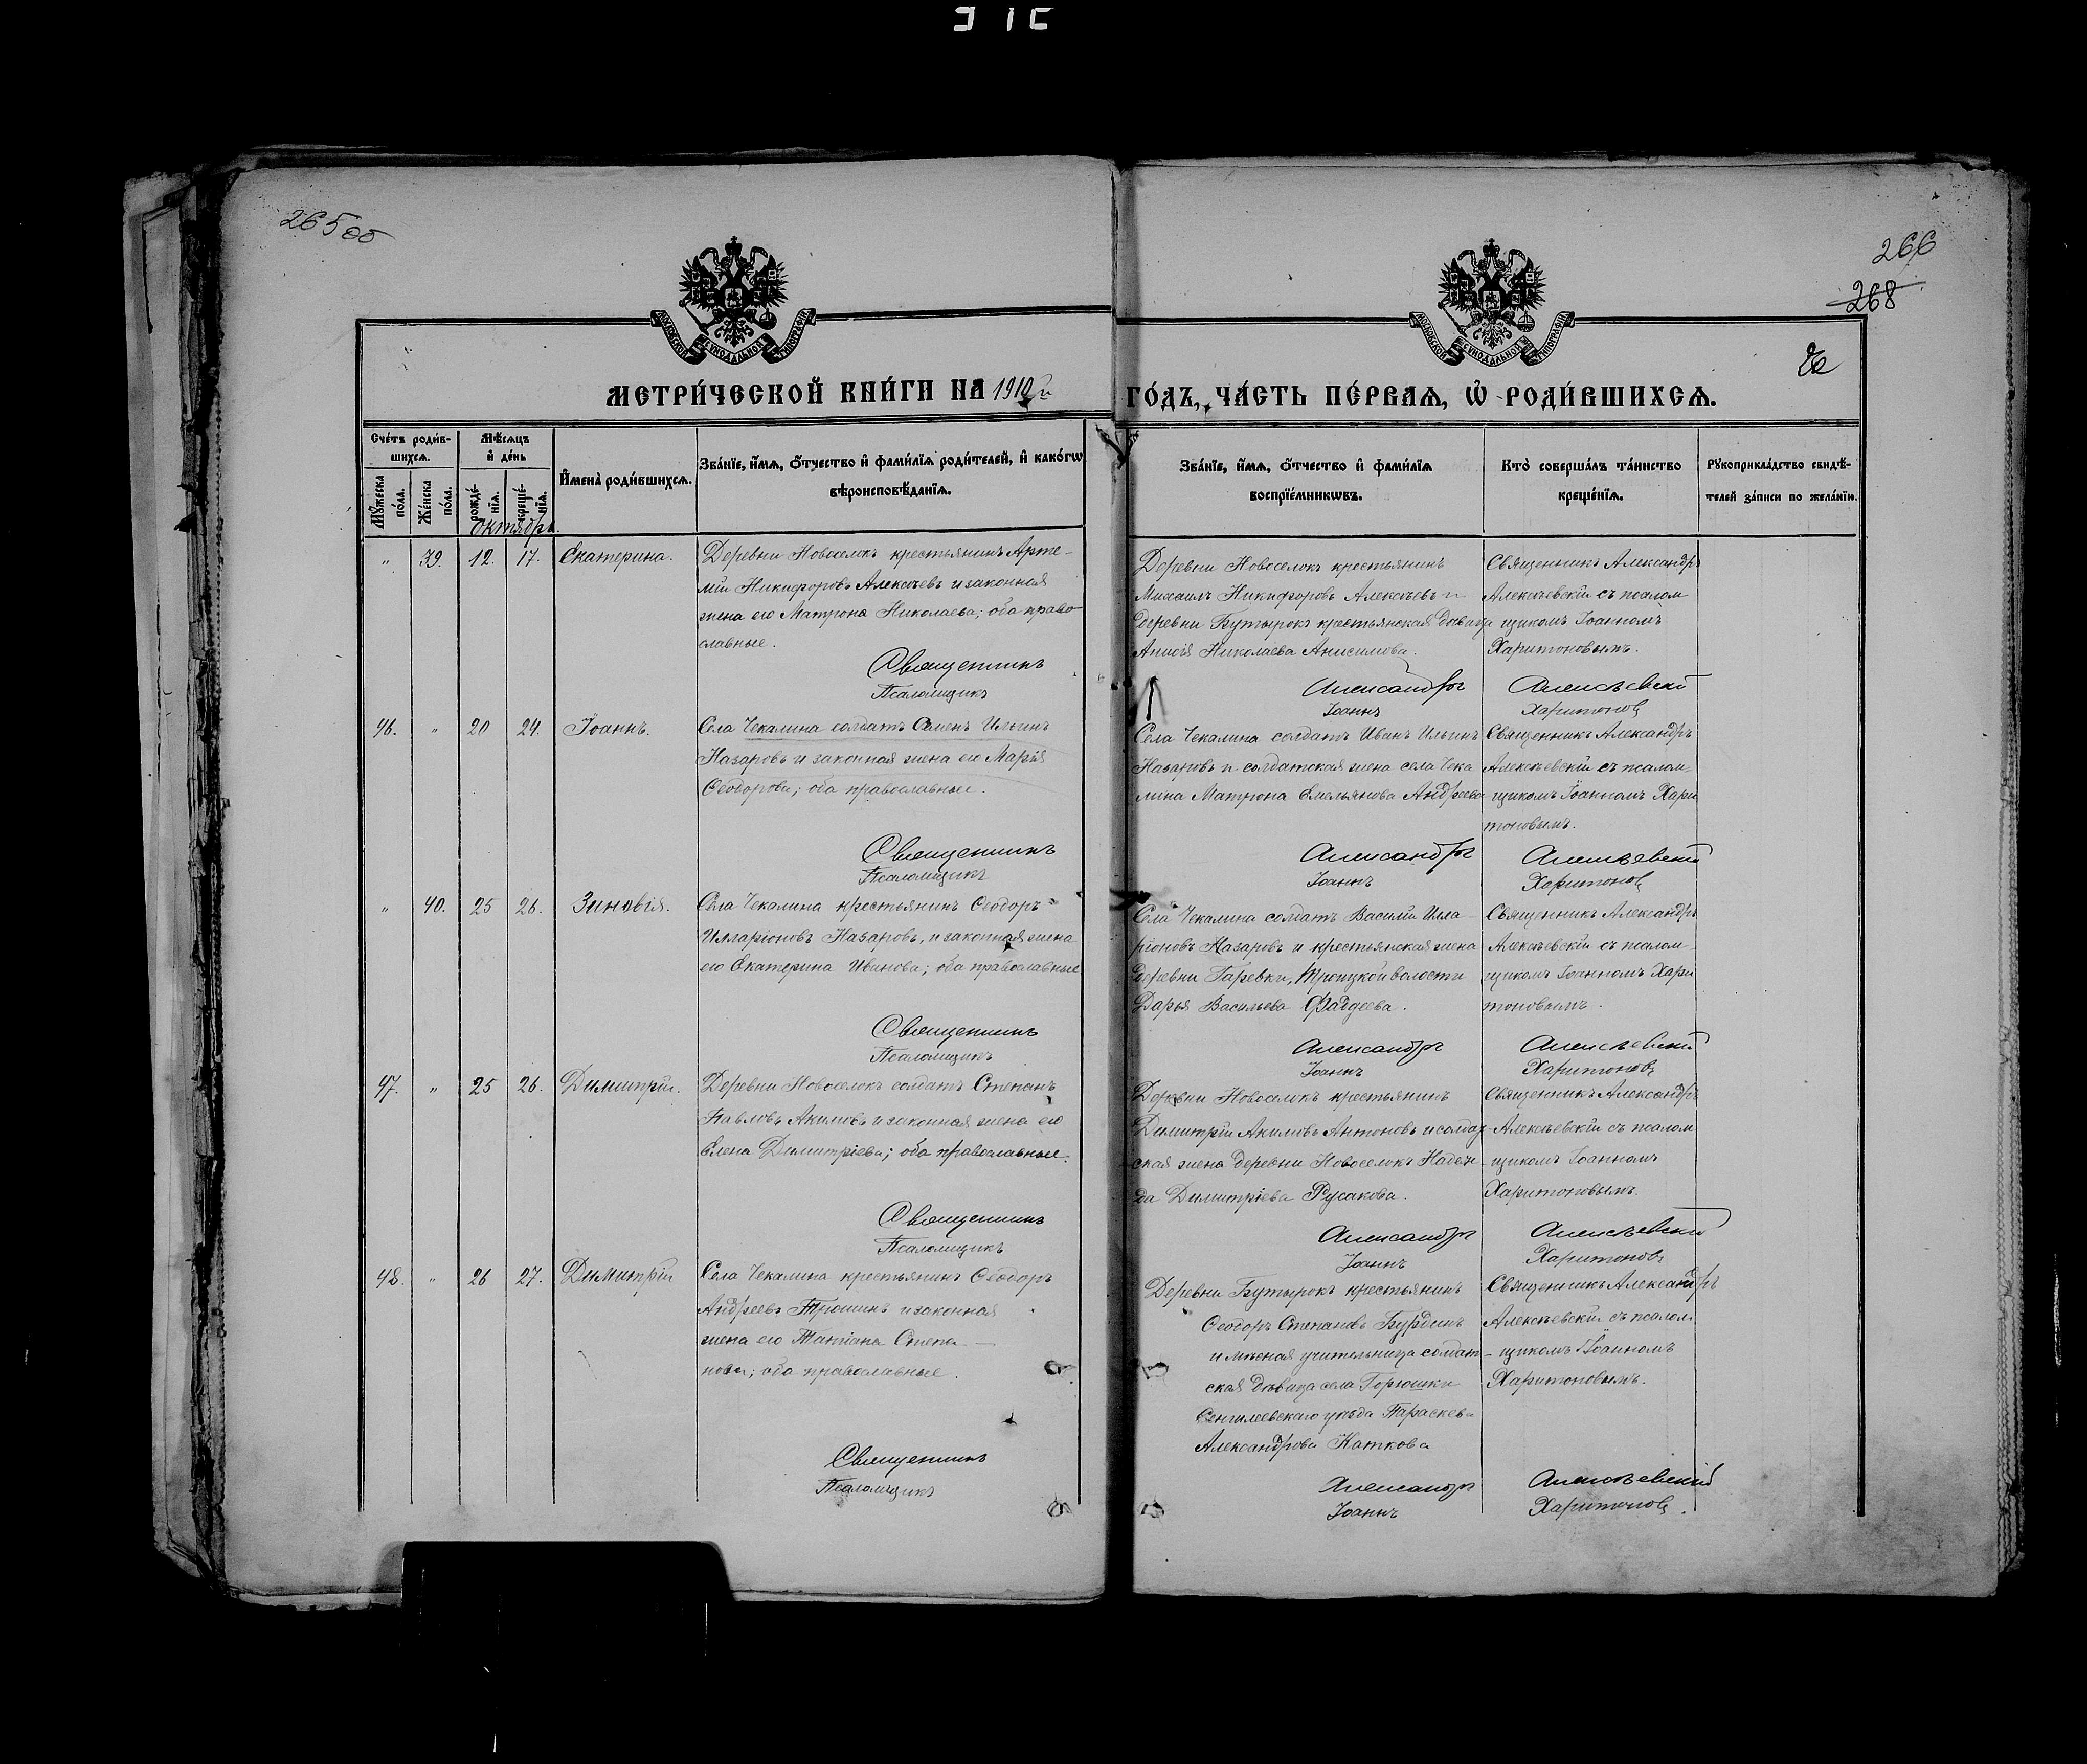 265об
266
268
МОСКОВСКОЙ СѴНОДАЛЬНОЙ ТИПОГРАФІИ
МОСКОВСКОЙ СѴНОДАЛЬНОЙ ТИПОГРАФІИ
МЕТРИ́ЧЕСКОЙ КНИ́ГИ НА 1910й ГО́ДЪ, ЧА́СТЬ ПЕ́РВАѦ, Ѡ҆ РОДИ́ВШИХСѦ.
Сче́тъ роди́в-
шихсѧ.
Мꙋ́жеска по́ла.
Же́нска по́ла.
Мѣ́сѧцъ и҆ де́нь
рожде́-нїѧ.
креще́-нїѧ.
И҆мена̀ роди́вшихсѧ.
Зва́нїе, и҆́мѧ, ѻ҆́тчество и҆ фами́лїѧ роди́телей, и҆ како́гѡ
вѣроисповѣ́данїѧ.
Зва́нїе, и҆́мѧ, ѻ҆́тчество и҆ фами́лїѧ
воспрїе́мникѡвъ.
Кто̀ соверша́лъ та́инство
креще́нїѧ.
Рꙋкоприкла́дство свидѣ́-
телей за́писи по жела́нїю.
Октябрь.
" 39. 12. 17. Екатерина.
Деревни Новоселокъ крестьянинъ Арте-
мій Никифоровъ Алексѣевъ и законная
жена его Матрона Николаева; оба право
славные.
Священникъ
Псаломщикъ
Деревни Новоселокъ крестьянинъ
Михаилъ Никифоровъ Алексѣевъ и
деревни Бутырокъ крестьянская дѣвица
Николаева Анисимова.
Александръ
Іоаннъ
Священникъ Александръ
Алексѣевскій съ псалом
щикомъ Іоанномъ
Харитоновымъ.
Алексѣевскій
Харитоновъ
46. " 20 24. Іоаннъ.
Села Чекалина солдатъ Семенъ Ильинъ
Назаровъ и законная жена его Марія
Ѳеодорова; оба православные.
Священникъ
Псаломщикъ
Села Чекалина солдатъ Иванъ Ильинъ
Назаровъ и солдатская жена села Чека
лина Матрона Емельянова Андреева
Александръ
Іоаннъ
Священникъ Александръ
Алексѣевскій съ псалом-
щикомъ Іоанномъ Хари
тоновымъ.
Алексѣевскій
Харитоновъ
" 40. 25 26. Зиновія.
Села Чекалина крестьянинъ Ѳеодоръ
Илларіоновъ Назаровъ, и законная жена
его Екатерина Иванова; оба православные
Священникъ
Псаломщикъ
Села Чекалина солдатъ Василій Илла-
ріоновъ Назаровъ и крестьянская жена
деревни Гаревки, Троицкой волости
Дарья Васильева Фаддеева.
Александръ
Іоаннъ
Священникъ Александръ
Алексѣевскій съ псалом-
щикомъ Іоанномъ Хари
тоновымъ.
Алексѣевскій
Харитоновъ
47. " 25 26. Димитрій.
Деревни Новоселокъ солдатъ Степанъ
Павловъ Акимовъ и законная жена его
Елена Димитріева; оба православные.
Священникъ
Псаломщикъ
Деревни Новоселокъ крестьянинъ
Димитрій Акимовъ Антоновъ и солдат-
ская жена деревни Новоселокъ Надеж-
да Димитріева Русакова.
Александръ
Іоаннъ
Священникъ Александръ
Алексѣевскій съ псалом
щикомъ Іоанномъ
Харитоновымъ.
Алексѣевскій
Харитоновъ
48. " 26 27. Димитрій
Села Чекалина крестьянинъ Ѳеодоръ
Андреевъ Трошинъ и законная
жена его Татіана Степа-
нова; оба православные.
Священникъ
Псаломщикъ
Деревни Бутырокъ крестьянинъ
Ѳеодоръ Степановъ Бурдинъ
и учительница солдат-
ская дѣвица села Горюшки
Сенгилеевскаго уѣзда Параскева
Александрова Каткова
Александръ
Іоаннъ
Священникъ Александръ
Алексѣевскій съ псалом
щикомъ Іоанномъ
Харитоновымъ.
Алексѣевскій
Харитоновъ.